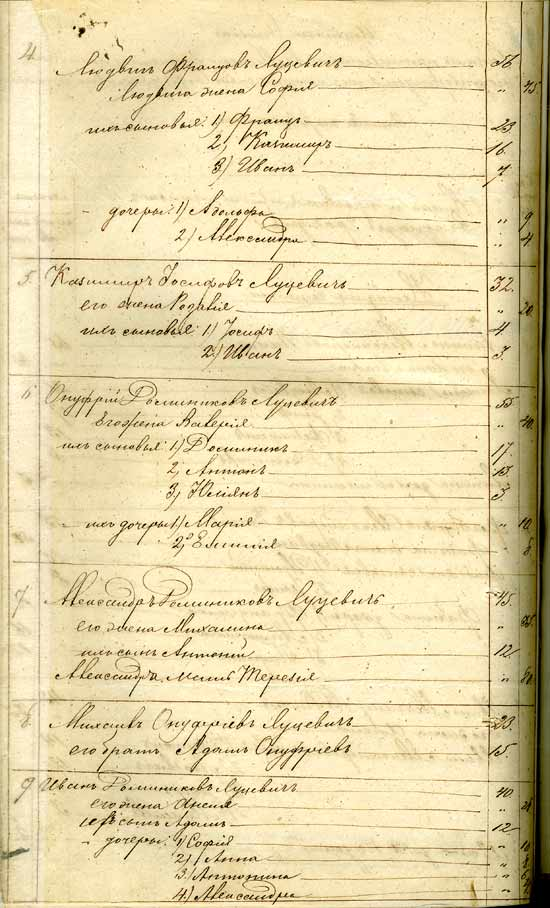 4 Людвигъ Францовъ Луцевичъ 56
Людвига жена Софія " 45
ихъ сыновья: 1) Францъ 23
2) Казимиръ 16
3) Иванъ 7
" дочери: 1) Адольфа " 9
2) Александра " 4
5 Казимиръ Іосифовъ Луцевичъ 32
его жена Розалія " 20
ихъ сыновья: 1) Іосифъ 4
2) Иванъ 3
6 Онуфрій Доминиковъ Луцевичъ 55
Его жена Валерія " 40
ихъ сыновья 1) Доминикъ 17
2) Антонъ 13
3) Юліянъ 3
" ихъ дочери 1) Марія " 10
2) Емилія " 8
7 Александръ Доминиковъ Луцевичъ 45
его жена Михалина " 35
ихъ сынъ Антоній 12
Александра мать Терезія " 80
8 Михаилъ Онуфріевъ Луцевичъ 23
его братъ Адамъ Онуфріевъ 15
9 Иванъ Доминиковъ Луцевичъ 40
его жена
ихъ сынъ Адамъ 12
" дочери: 1) Софія " 10
2) Анна "
3) Антонина " 6
4) Александра "